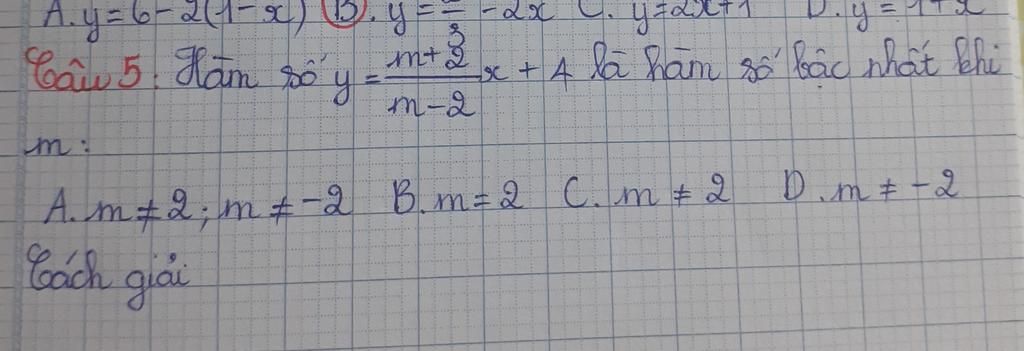 A. y = 6 - 2(1 - x) B. y = - 2x C. y = 2x + 1 D. y = 1 + x
Câu 5: Hàm số y = \frac{m+2}{m-2}x + 4 là hàm số bậc nhất khi
m:
A. m ≠ 2; m ≠ -2 B. m = 2 C. m ≠ 2 D. m ≠ -2
Cách giải